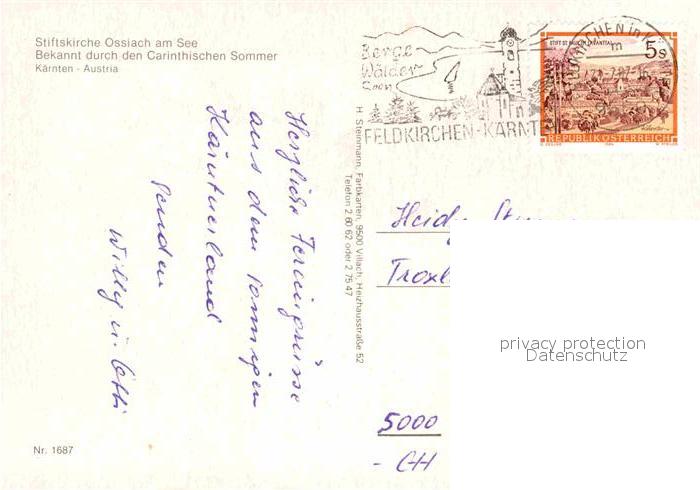 Stiftskirche Ossiach am See
Bekannt durch den Carinthischen Sommer
Kärnten - Austria
Herzliche Feriengrüsse
aus dem sonnigen
Kärntnerland
senden
Willy u. Otti
Nr. 1687
H. Steinmann, Farbkarten, 9500 Villach, Heizhausstraße 52
Telefon 2 60 62 oder 2 75 47
Berge
Wälder
Seen
FELDKIRCHEN-KÄRNTEN
STIFT ST. PAUL IM LAVANTTAL
5s
REPUBLIK ÖSTERREICH
Heidy
5000
- CH
privacy protection
Datenschutz